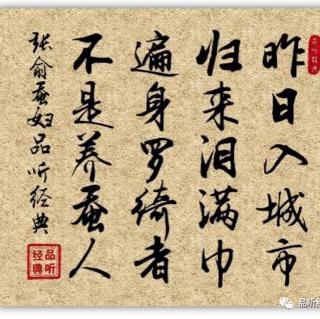 品听经典
昨日入城市
归来泪满巾
遍身罗绮者
不是养蚕人
张俞蚕妇品听经典
品听经典
品听经典